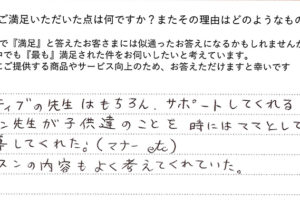 ご満足いただいた点は何ですか？またその理由はどのようなもの
で『満足』と答えたお客さまには似通ったお答えになるかもしれませんが
中でも『最も』満足された件をお伺いしたいと考えています。
にご提供する商品やサービス向上のため、お答えただけますと幸いです
ティブの先生はもちろん、サポートしてくれる
ン先生が子供達のことを時にはママとして
導してくれた。(マナー etc)
スンの内容もよく考えてくれていた。